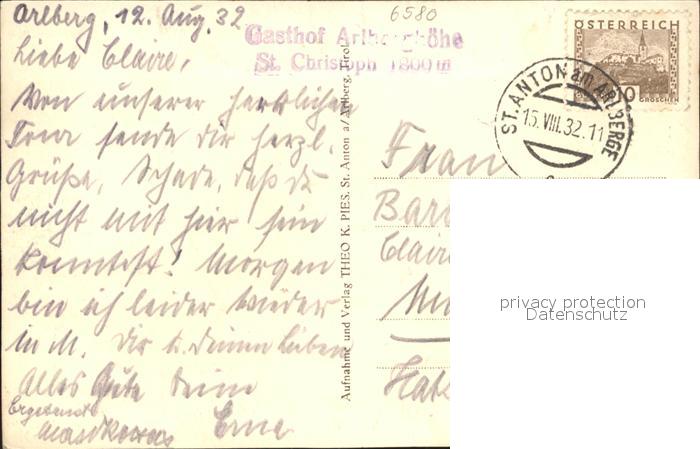 Arlberg, 12. Aug. 32
6580
Gasthof Arlberghöhe
St. Christoph 1800 m
Liebe Claire,
Von unserer herrlichen
Tour sende dir herzl.
Grüße. Schade, daß du
nicht mit hier sein
konntest! Morgen
bin ich leider wieder
in M. Dir u. deinen Lieben
Alles Gute deine
Erna
Aufnahme und Verlag THEO K. PIES, St. Anton a/Arlberg, Tirol
ÖSTERREICH
GROSCHEN
ST. ANTON am ARLBERGE
15. VIII. 32. 11
Frau
Claire
privacy protection
Datenschutz